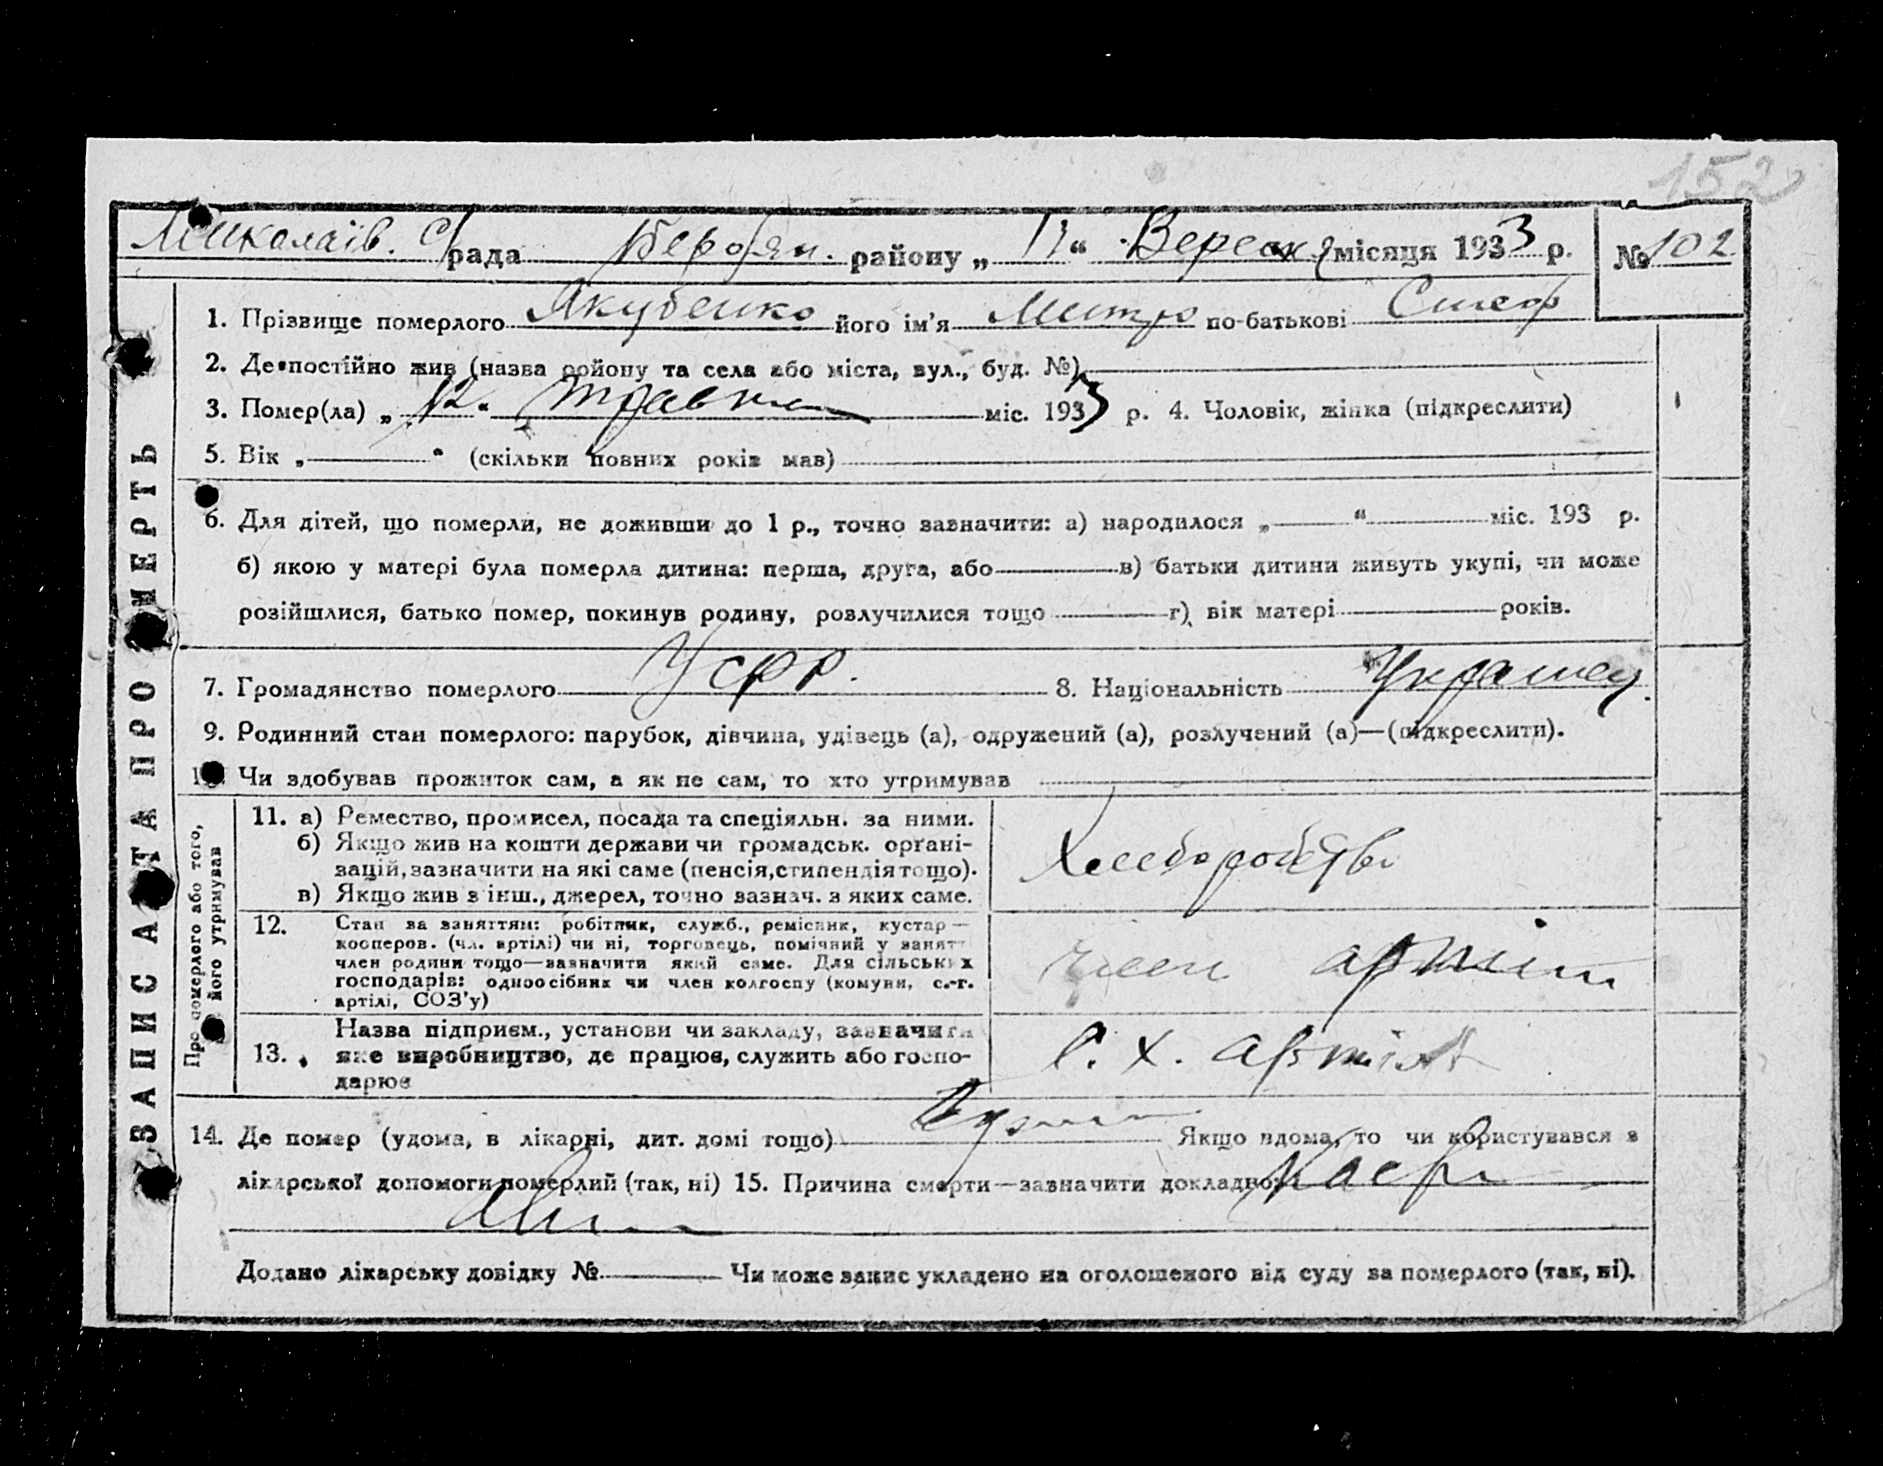 152
Миколаїв. с/рада Бердян. району „ 13 “ Вересня місяця 1933 р. № 102
1. Прізвище померлого Якубенко його ім'я Митро по-батькові
2. Де постійно жив (назва району та села або міста, вул., буд. №)
3. Помер(ла) „ 12 “ травня міс. 1933 р. 4. Чоловік, жінка (підкреслити)
5. Вік „ “ (скільки повних років мав)
6. Для дітей, що померли, не доживши до 1 р., точно зазначити: а) народилося „ “ міс. 193 р.
б) якою у матері була померла дитина: перша, друга, або в) батьки дитини живуть укупі, чи може
розійшлися, батько помер, покинув родину, розлучилися тощо г) вік матері років.
7. Громадянство померлого Усрр. 8. Національність Українец.
9. Родинний стан померлого: парубок, дівчина, удівець (а), одружений (а), розлучений (а)—(підкреслити).
Чи здобував прожиток сам, а як не сам, то хто утримував
ЗАПИС АКТА ПРО СМЕРТЬ
Про померлого або того, його утримував
11. а) Ремество, промисел, посада та спеціяльн. за ними.
б) Якщо жив на кошти держави чи громадськ. орґані-
зацій, зазначити на які саме (пенсія, стипендія тощо).
в) Якщо жив з інш., джерел, точно зазнач. з яких саме.
12. Стан за заняттям: робітник, служб., ремісник, кустар—
кооперов. (чл. артілі) чи ні, торговець, помічний у занятт
член родини тощо—зазначити який саме. Для сільських
господарів: одноосібник чи член колгоспу (комуни, с.-г.
артілі, СОЗ'у)
член артіли
Назва підприєм., установи чи закладу, зазначити
13. яке виробництво, де працює, служить або госпо-
дарює
с. х. артіль
14. Де помер (удома, в лікарні, дит. домі тощо) Якщо вдома, то чи користувався з
лікарської допомоги померлий (так, ні) 15. Причина смерти—зазначити докладно:
Додано лікарську довідку № Чи може запис укладено на оголошеного від суду за померлого (так, ні).